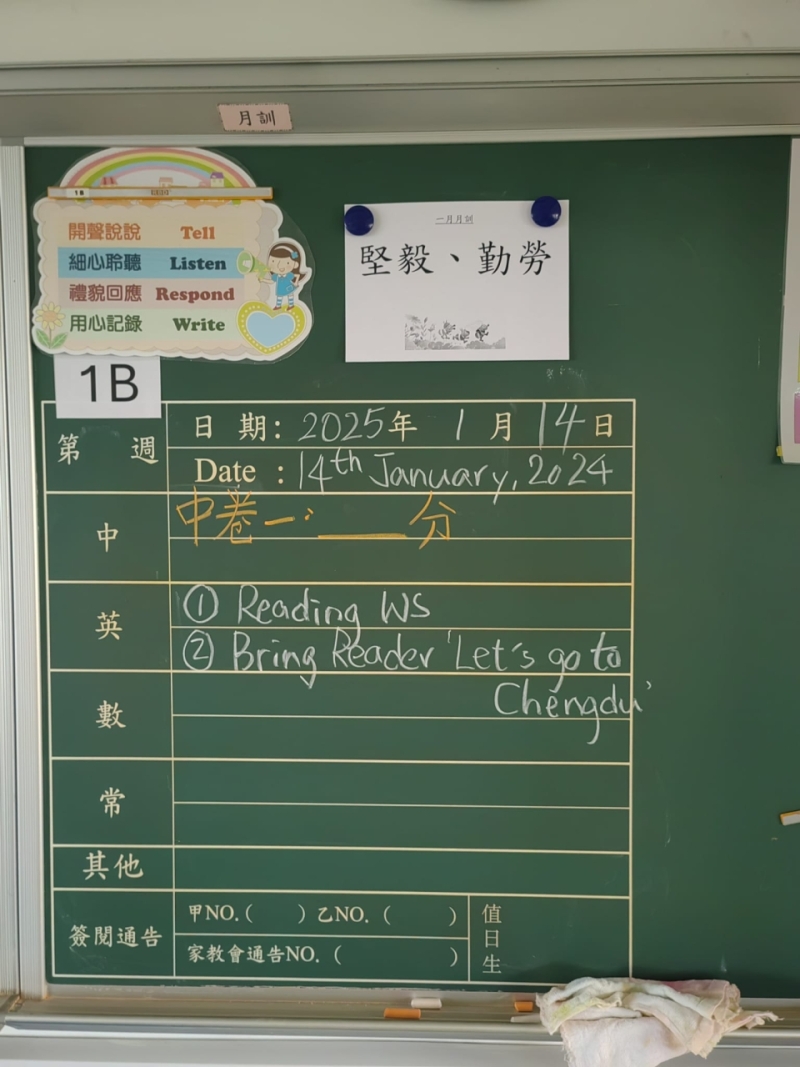 月訓
1B
開聲說說 Tell
細心聆聽 Listen
禮貌回應 Respond
用心記錄 Write
一月月訓
堅毅、勤勞
1B
第 週
日 期: 2025年 1 月 14 日
Date : 14th January, 2024
中
中卷一: ____分
英
① Reading WS
② Bring Reader 'Let's go to
Chengdu'
數
常
其他
簽閱通告
甲NO.( ) 乙NO. ( )
家教會通告NO. ( )
值日生